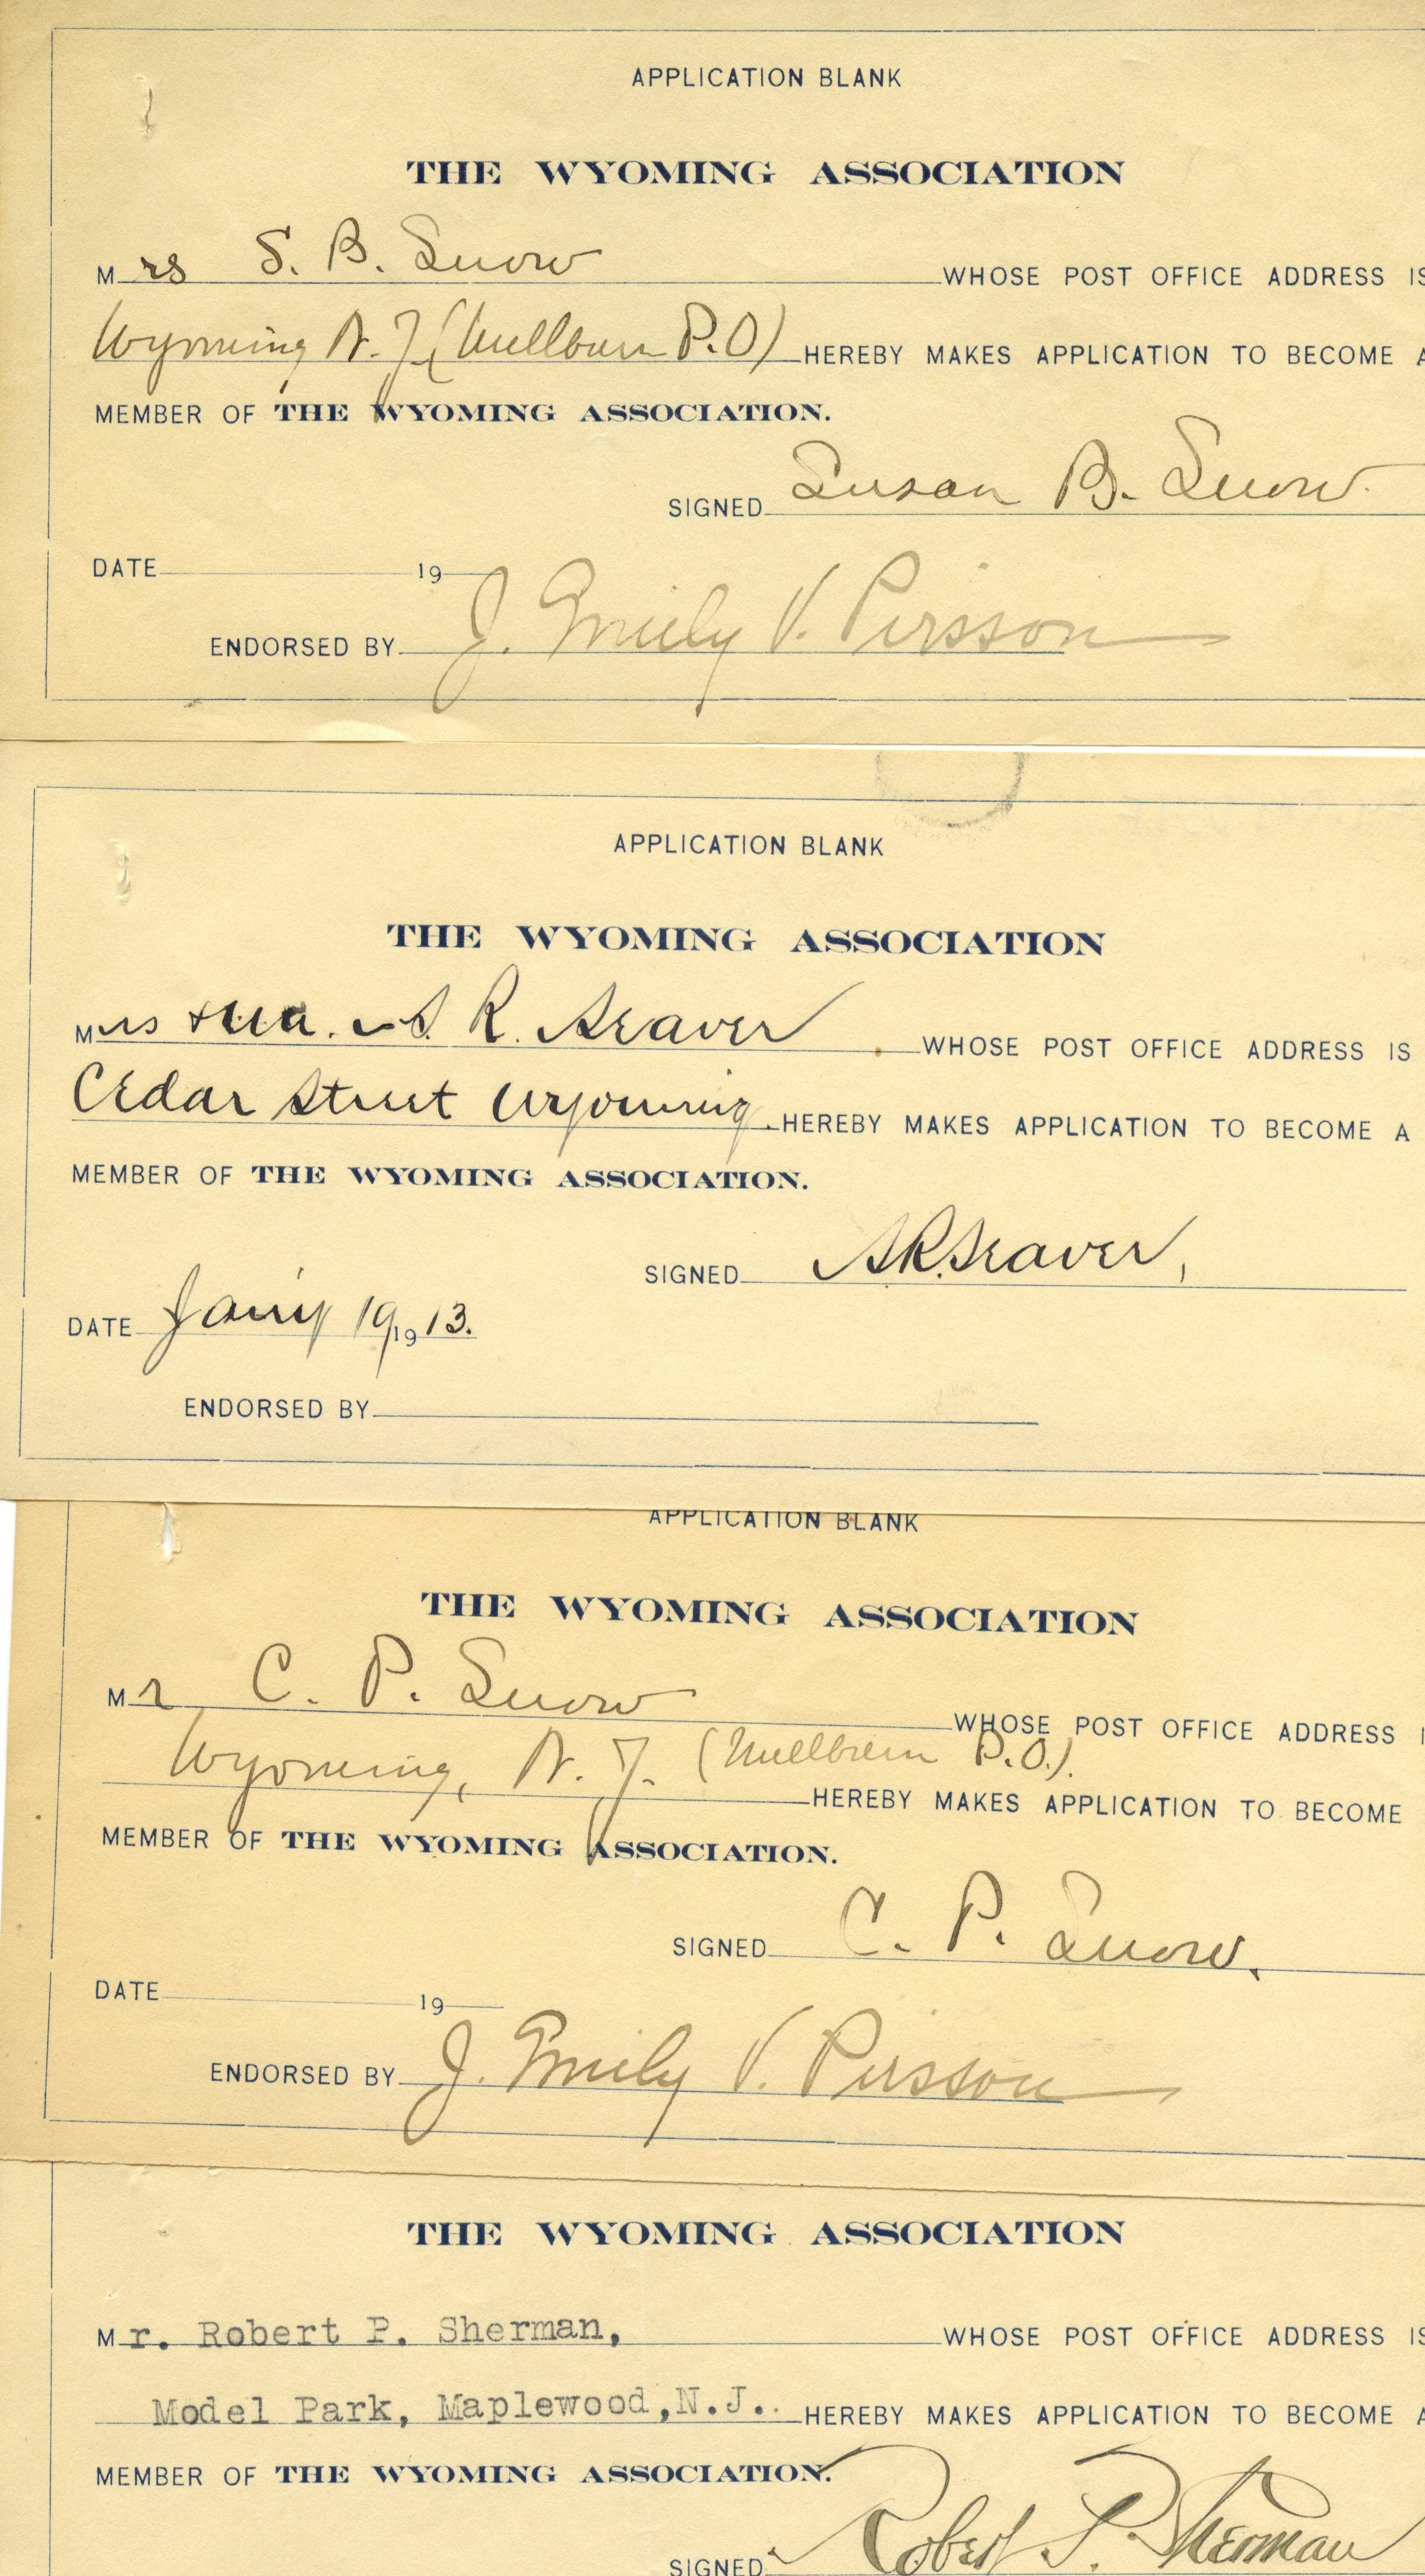 APPLICATION BLANK
THE WYOMING ASSOCIATION
Mrs S. B. Snow WHOSE POST OFFICE ADDRESS IS
Wyoming N. J. (Millburn P.O) HEREBY MAKES APPLICATION TO BECOME A
MEMBER OF THE WYOMING ASSOCIATION.
SIGNED Susan B. Snow
DATE 19
ENDORSED BY J. Emily V. Pirsson
APPLICATION BLANK
THE WYOMING ASSOCIATION
Mrs S. R. Seaver WHOSE POST OFFICE ADDRESS IS
Cedar Street Wyoming HEREBY MAKES APPLICATION TO BECOME A
MEMBER OF THE WYOMING ASSOCIATION.
SIGNED S R. Seaver,
DATE Jan'y 19, 1913.
ENDORSED BY
APPLICATION BLANK
THE WYOMING ASSOCIATION
Mr C. P. Snow WHOSE POST OFFICE ADDRESS I
Wyoming, N. J. (Millburn P.O.). HEREBY MAKES APPLICATION TO BECOME
MEMBER OF THE WYOMING ASSOCIATION.
SIGNED C. P. Snow.
DATE 19
ENDORSED BY J. Emily V. Pirsson
THE WYOMING ASSOCIATION
Mr. Robert P. Sherman, WHOSE POST OFFICE ADDRESS IS
Model Park, Maplewood, N.J.. HEREBY MAKES APPLICATION TO BECOME A
MEMBER OF THE WYOMING ASSOCIATION.
SIGNED. Robert P. Sherman